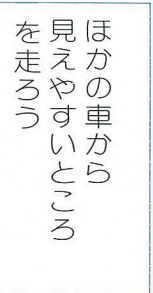 ほかの車から
見えやすいところ
を走ろう